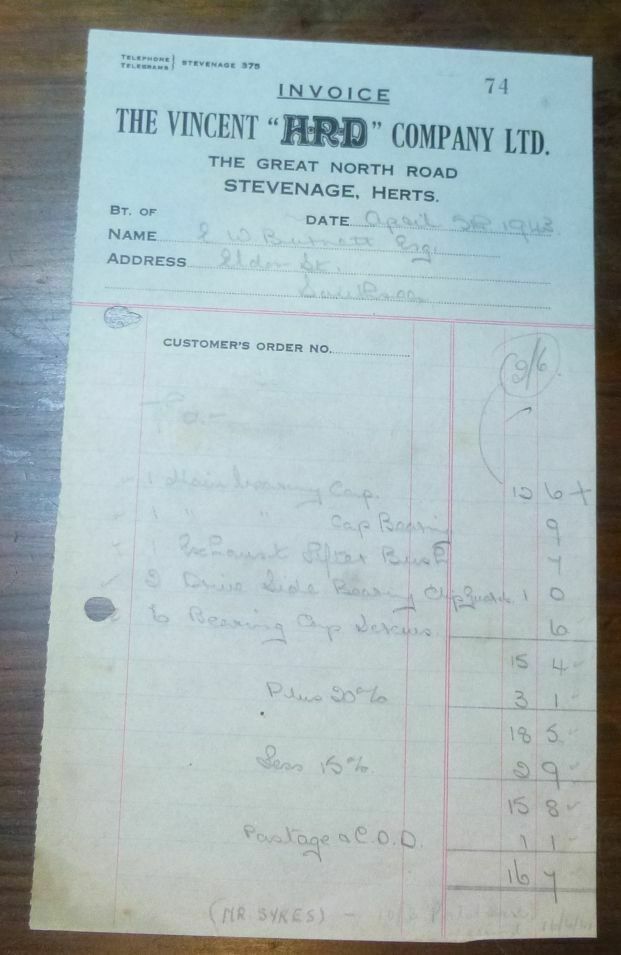 TELEPHONE
TELEGRAMS STEVENAGE 375
74
INVOICE
THE VINCENT "H·R·D" COMPANY LTD.
THE GREAT NORTH ROAD
STEVENAGE, HERTS.
BT. OF
DATE April 1943
NAME E W Burnett Esq.
ADDRESS Elder St.
CUSTOMER'S ORDER NO.
2/6
1 Main bearing Cap. 12 6 +
1 " " Cap Bearing 9
1 Exhaust Lifter Bush 7
2 Drive Side Bearing 1 0
6 Bearing Cap Screws 6
15 4
Plus 20% 3 1
18 5
Less 15% 2 9
15 8
Postage & C.O.D. 1 1
16 7
(MR. SYKES) -